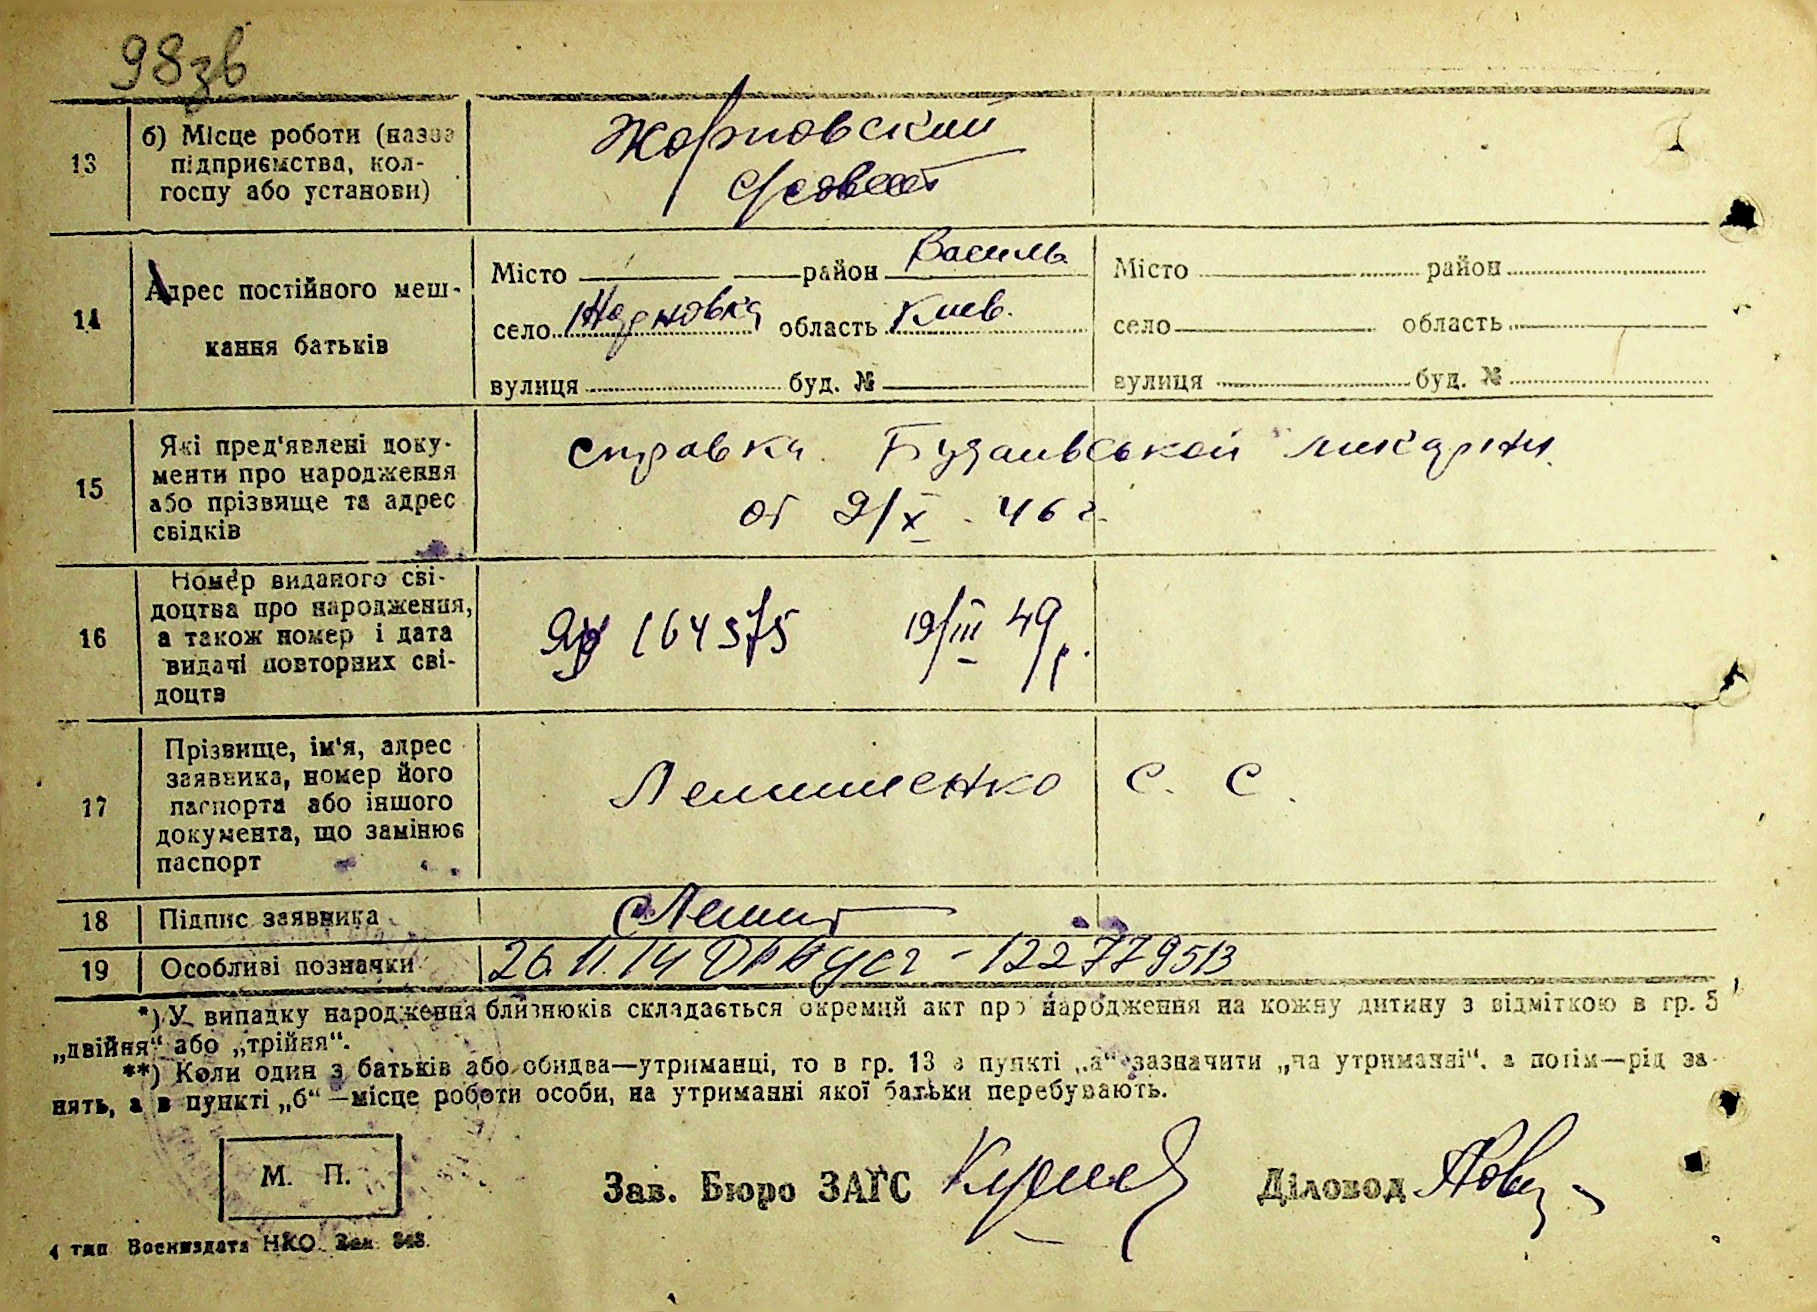 98зв
13 б) Місце роботи (назва
підприємства, кол-
госпу або установи)
Жорновский
с/совет
14 Адрес постійного меш-
кання батьків
Місто район Василь Місто район
село Жорновка область Киев. село область
вулиця буд. № вулиця буд. №
15 Які пред'явлені доку-
менти про народження
або прізвище та адрес
свідків
справка лікарни
от 9/X 46 г.
16 Номер виданого сві-
доцтва про народження,
а також номер і дата
видачі повторних сві-
доцтв
164575 19/III 49 р.
17 Прізвище, ім'я, адрес
заявника, номер його
паспорта або іншого
документа, що замінює
паспорт
С. С.
18 Підпис заявника
19 Особливі позначки
26.11.14
*) У випадку народження близнюків складається окремий акт про народження на кожну дитину з відміткою в гр. 5
„двійня“ або „трійня“.
**) Коли один з батьків або обидва—утриманці, то в гр. 13 в пункті „а“ зазначити „на утриманні“, а потім—рід за-
нять, а в пункті „б“—місце роботи особи, на утриманні якої батьки перебувають.
М. П.
Зав. Бюро ЗАГС Діловод
4 тип Воениздата НКО. Зак. 343.